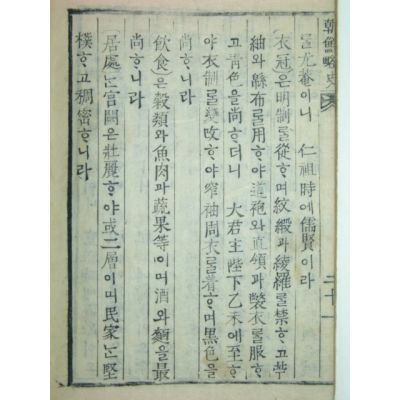 朝鮮略史
二十一
ᄅᆞᆯ尤菴이니 仁祖時에儒賢이라
(衣冠)은明制ᄅᆞᆯ從ᄒᆞ며紋緞과綾羅ᄅᆞᆯ禁ᄒᆞ고苧
紬와緜布ᄅᆞᆯ用ᄒᆞ야道袍와直領과氅衣ᄅᆞᆯ服ᄒᆞ
고靑色을尙ᄒᆞ더니 大君主陛下乙未에至ᄒᆞ
야衣制ᄅᆞᆯ變改ᄒᆞ야窄袖周衣ᄅᆞᆯ着ᄒᆞ며黑色을
尙ᄒᆞ니라
(飮食)은穀類와魚肉과蔬果等이며酒와麵을最
尙ᄒᆞ니라
(居處)ᄂᆞᆫ官闕은壯麗ᄒᆞ야或二層이며民家ᄂᆞᆫ堅
樸ᄒᆞ고稠密ᄒᆞ니라